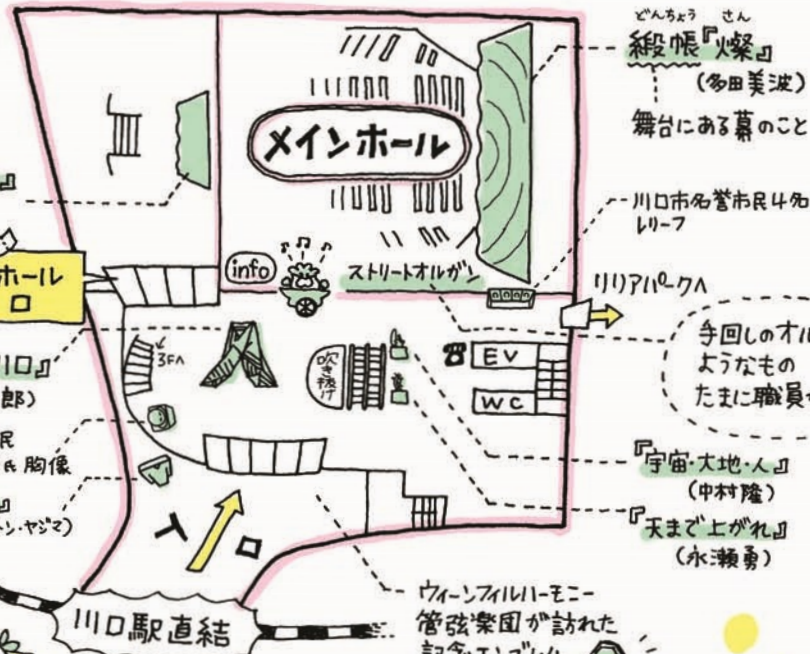 どんちょう さん
緞帳『燦』
(多田美波)
舞台にある幕のこと
メインホール
川口市名誉市民4名
レリーフ
info
ストリートオルガン
リリアパークへ
』
ホール
口
手回しのオル
ようなもの
たまに職員
3Fへ
吹き抜け
EV
WC
川口』
郎)
民
氏 胸像
』
ン・ヤジマ)
『宇宙・大地・人』
(中村隆)
『天まで上がれ』
(永瀬勇)
入口
川口駅直結
ウィーンフィルハーモニー
管弦楽団が訪れた